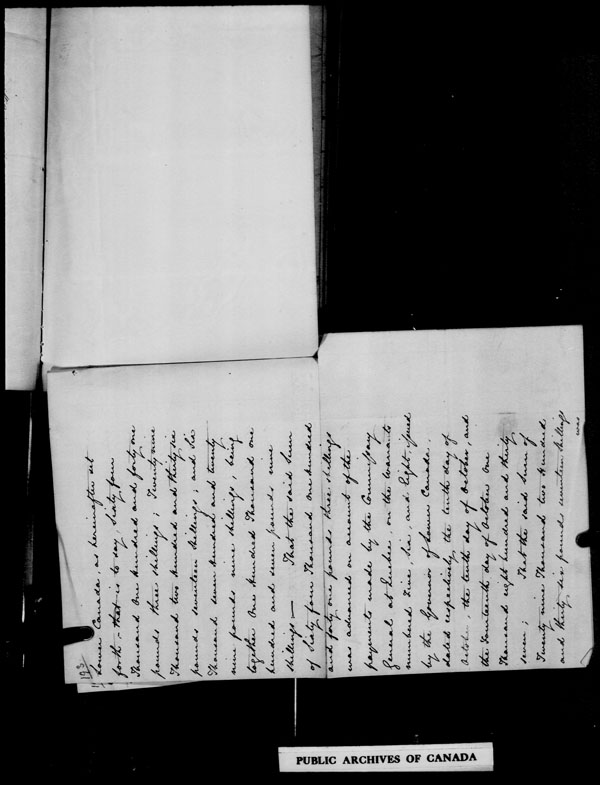 193
Lower Canada as hereinafter set
forth, that is to say, Sixty four
Thousand One hundred and forty one
pounds three shillings; Twenty nine
Thousand two hundred and thirty six
pounds seventeen shillings; and Six
Thousand seven hundred and twenty
nine pounds nine shillings, being
together One hundred Thousand one
hundred and seven pounds nine
shillings — That the said Sum
of Sixty four Thousand One hundred
and forty one pounds three shillings
was advanced on account of the
payments made by the Commissary
General at Quebec, on the Warrants
numbered Five, Six, and Eight, issued
by the Governor of Lower Canada,
dated respectively the tenth day of
October, the tenth day of October, and
the fourteenth day of October One
Thousand eight hundred and thirty
seven; That the said Sum of
Twenty nine Thousand two hundred
and thirty six pounds seventeen shillings
was
PUBLIC ARCHIVES OF CANADA